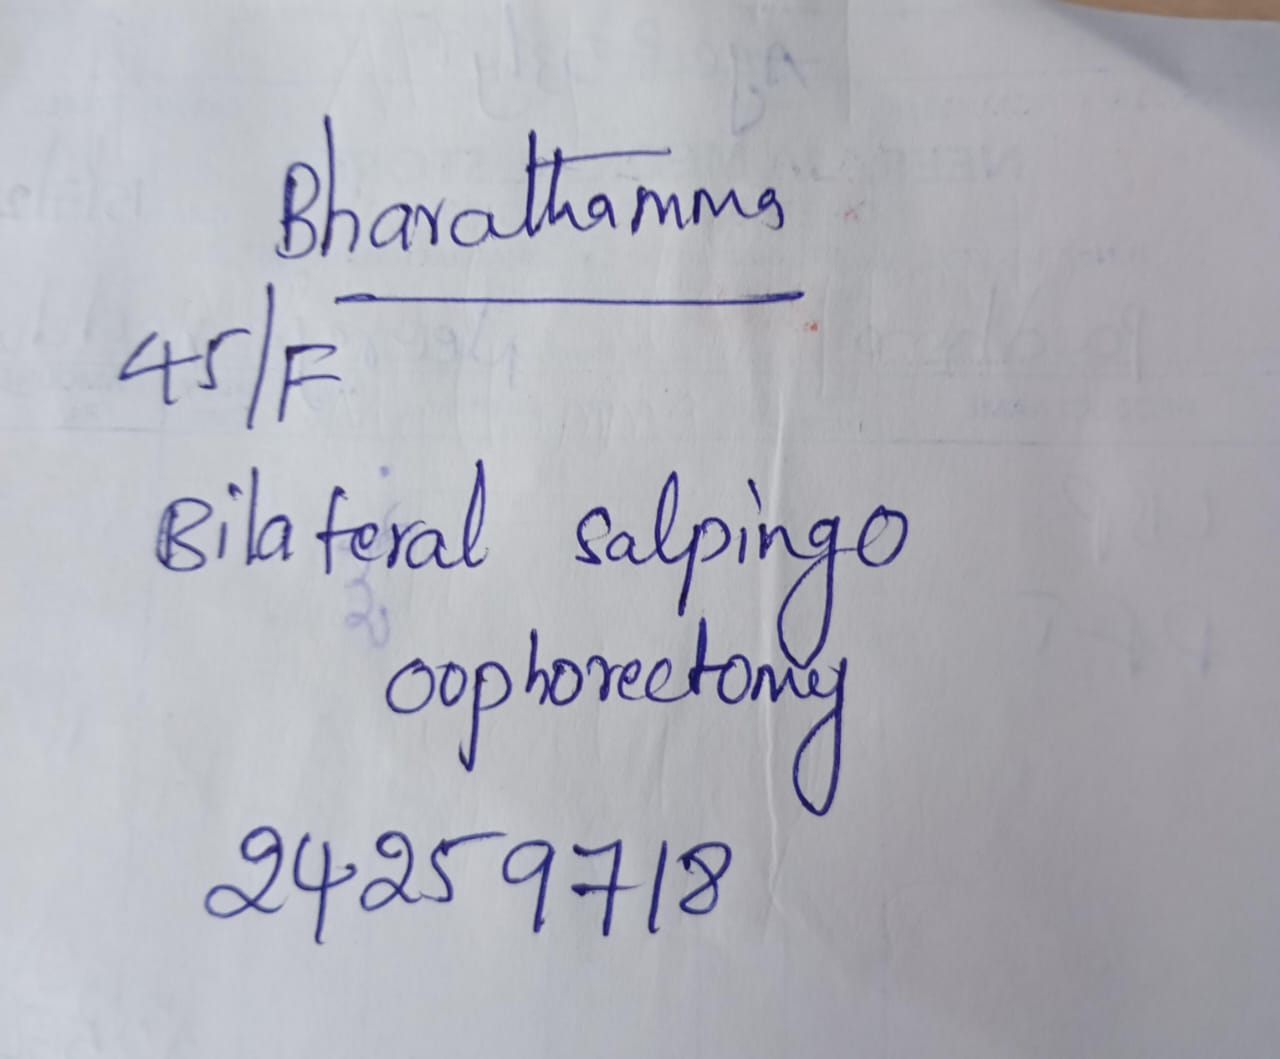 Bharathamma
45/F
Bilateral salpingo
oophorectomy
24259718